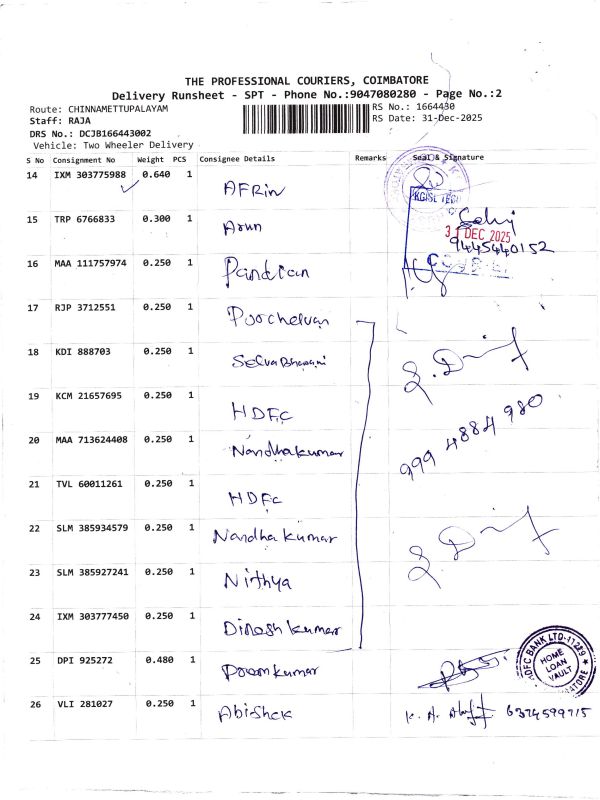 THE PROFESSIONAL COURIERS, COIMBATORE
Delivery Runsheet - SPT - Phone No.:9047080280 - Page No.:2
Route: CHINNAMETTUPALAYAM
RS No.: 1664430
Staff: RAJA
RS Date: 31-Dec-2025
DRS No.: DCJB166443002
Vehicle: Two Wheeler Delivery
S No Consignment No Weight PCS Consignee Details Remarks Seal & Signature
14 IXM 303775988 0.640 1 AFRin
KGISL TECH
15 TRP 6766833 0.300 1 Arun
31 DEC 2025
9445440152
16 MAA 111757974 0.250 1 Pandian
17 RJP 3712551 0.250 1 Poochelvan
18 KDI 888703 0.250 1 Selva Bhavani
19 KCM 21657695 0.250 1 HDFC
999 4884 980
20 MAA 713624408 0.250 1 Nandhakumar
21 TVL 60011261 0.250 1 HDFC
22 SLM 385934579 0.250 1 Nandha kumar
23 SLM 385927241 0.250 1 Nithya
24 IXM 303777450 0.250 1 Dinesh kumar
25 DPI 925272 0.480 1 Poonkumar
HDFC BANK LTD-17289
HOME
LOAN
VAULT
26 VLI 281027 0.250 1 Abishek
6374599715